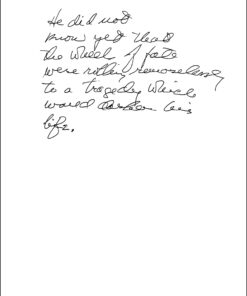 He did not
know yet that
the wheel of fate
were rolling remorselessly
to a tragedy which
would darken his
life.